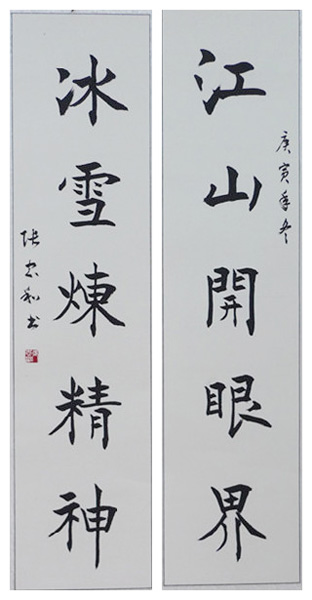 江山開眼界
庚寅年冬
冰雪煉精神
張忠和书